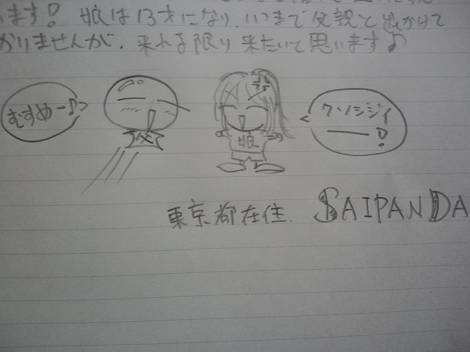 います! 娘は13才になり、いつまで父親と出かけて
かりませんが、来れる限り来たいと思います♪
むすめー♪
父
娘
クソジジイ
ーー!
東京都在住 SAIPANDA